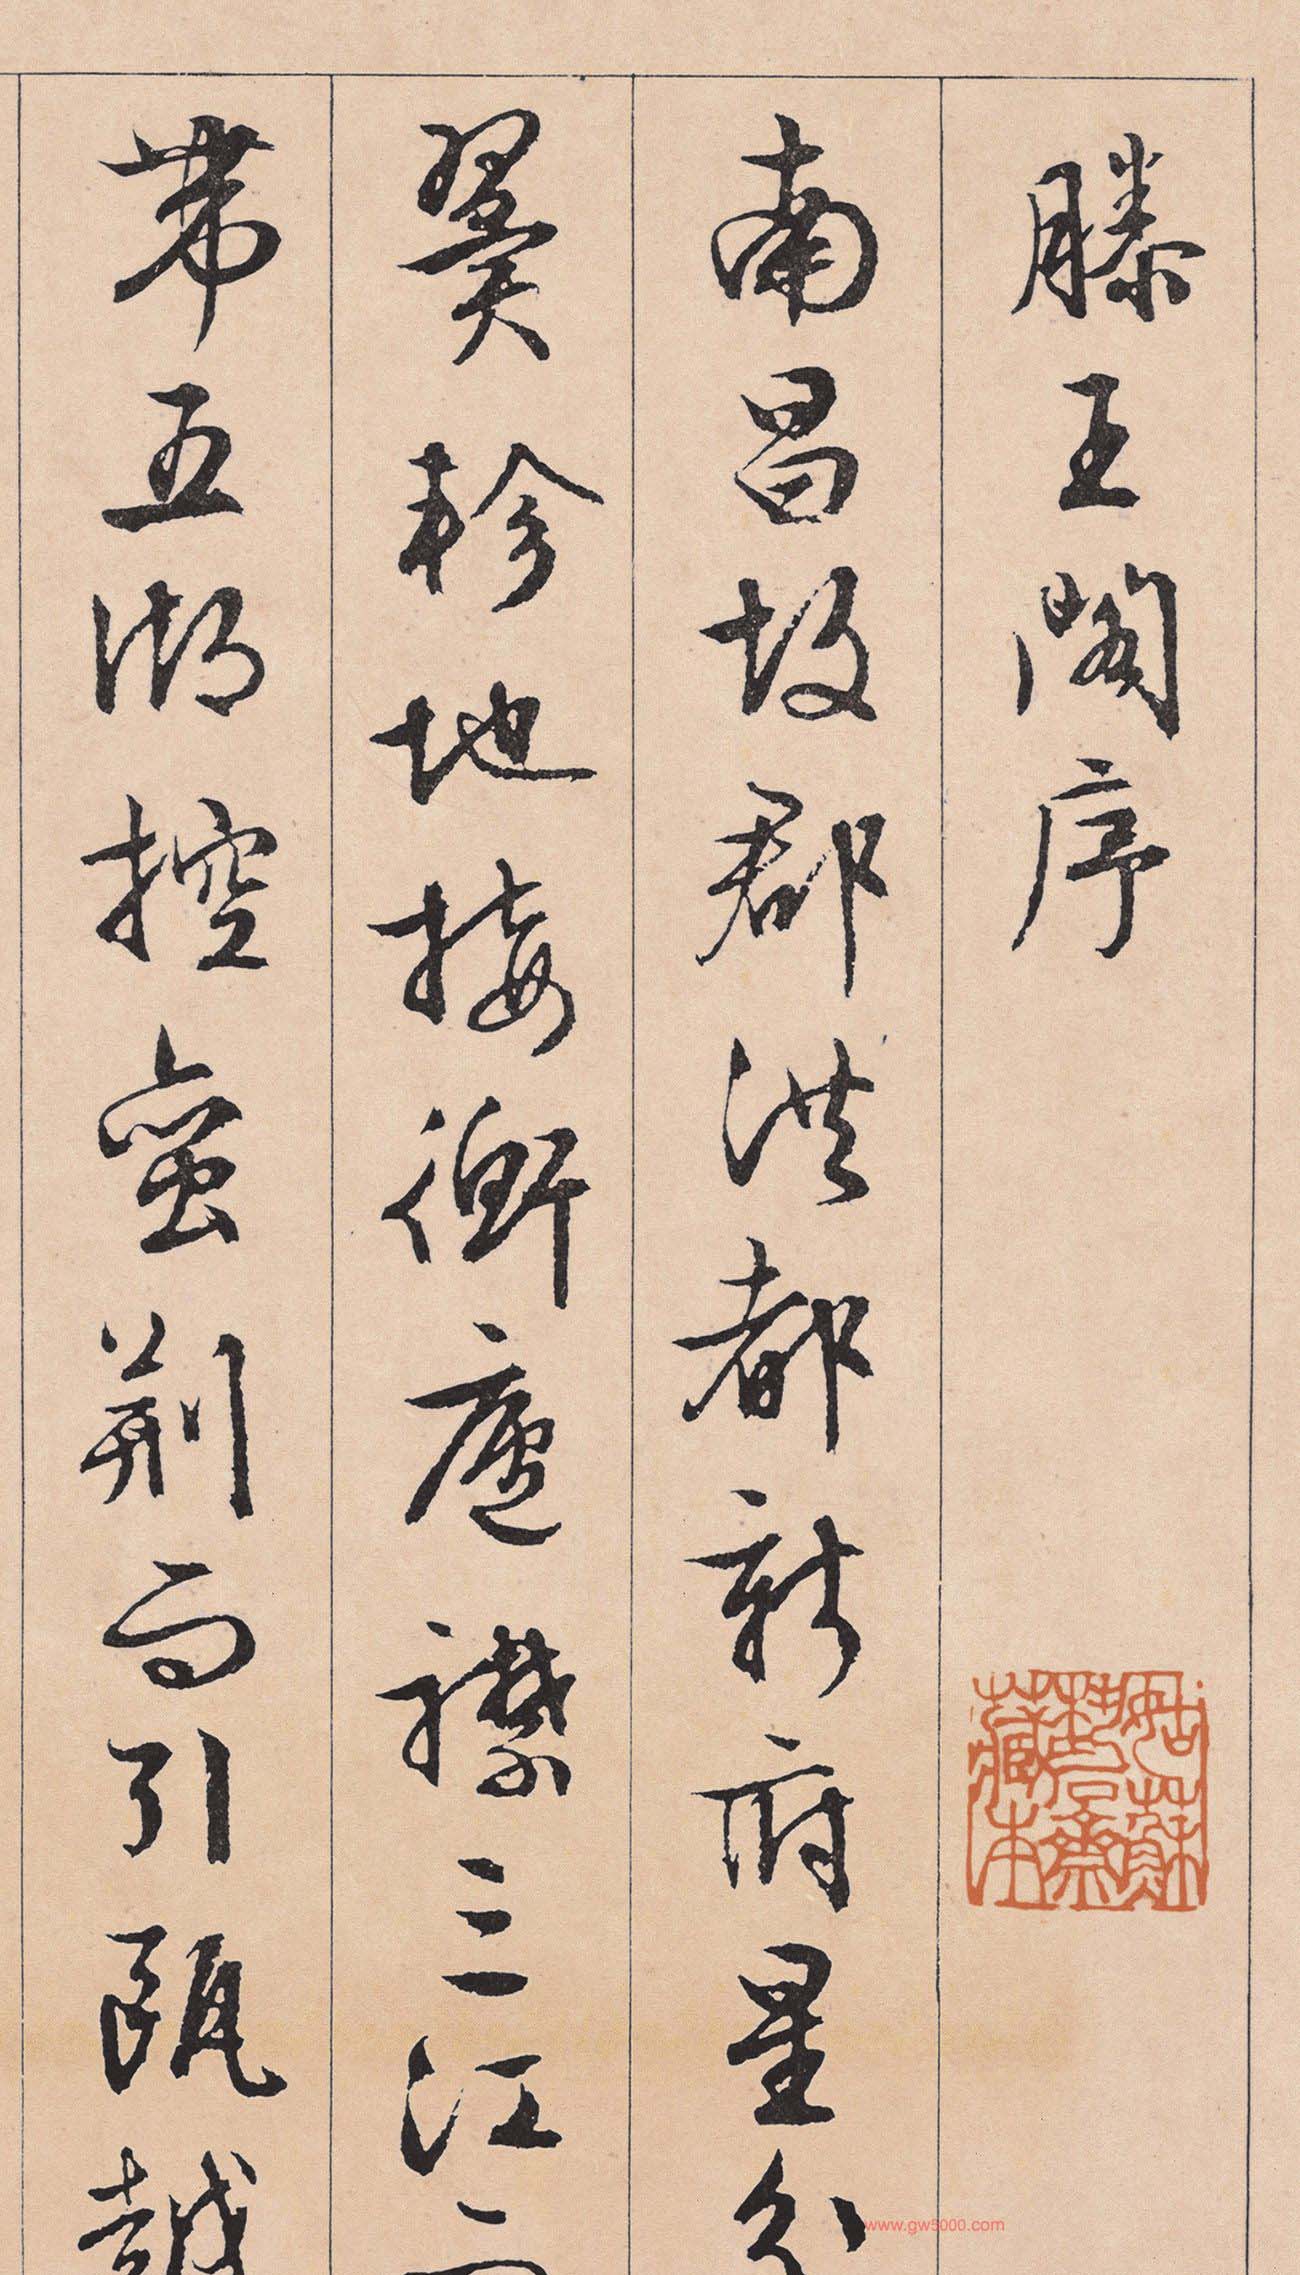 滕王閣序
南昌故郡洪都新府星分
翼軫地接衡廬襟三江而
帶五湖控蠻荊而引甌越
姑蘇
齋
藏本
www.gw5000.com